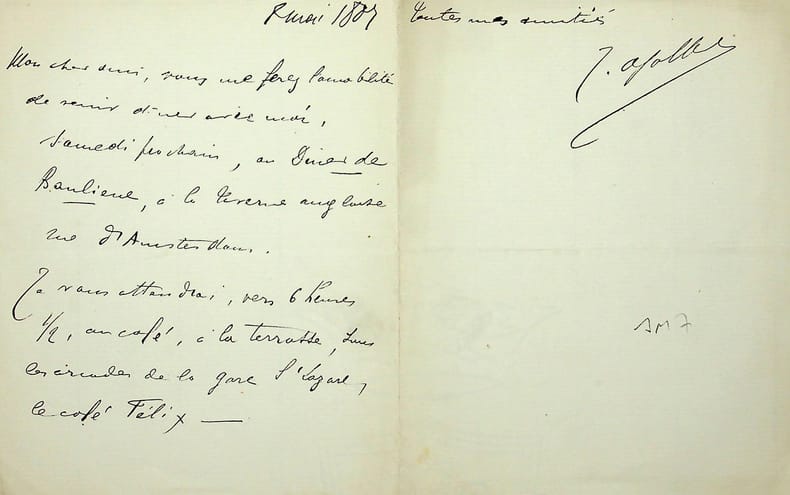 8 mai 1887
Mon cher ami, vous me ferez l'amabilité
de venir dîner avec moi,
samedi prochain, au Diner de
Banlieue, à la taverne anglaise
rue d'Amsterdam.
Je vous attendrai, vers 6 heures
1/2, au café, à la terrasse, sous
les arcades de la gare St Lazare,
le café Félix —
toutes mes amitiés
J.